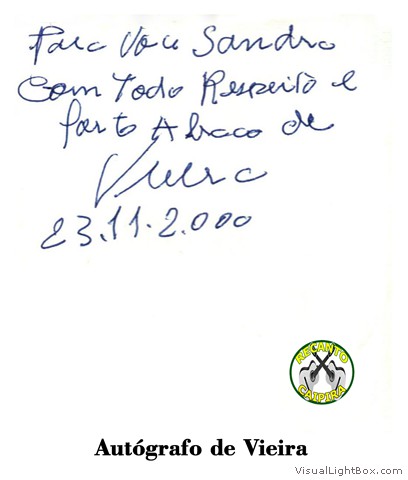 Para Você Sandro
Com Todo Respeito e
forto Abraco de
Vieira
23.11.2.000
RECANTO
CAIPIRA
Autógrafo de Vieira
VisualLightBox.com